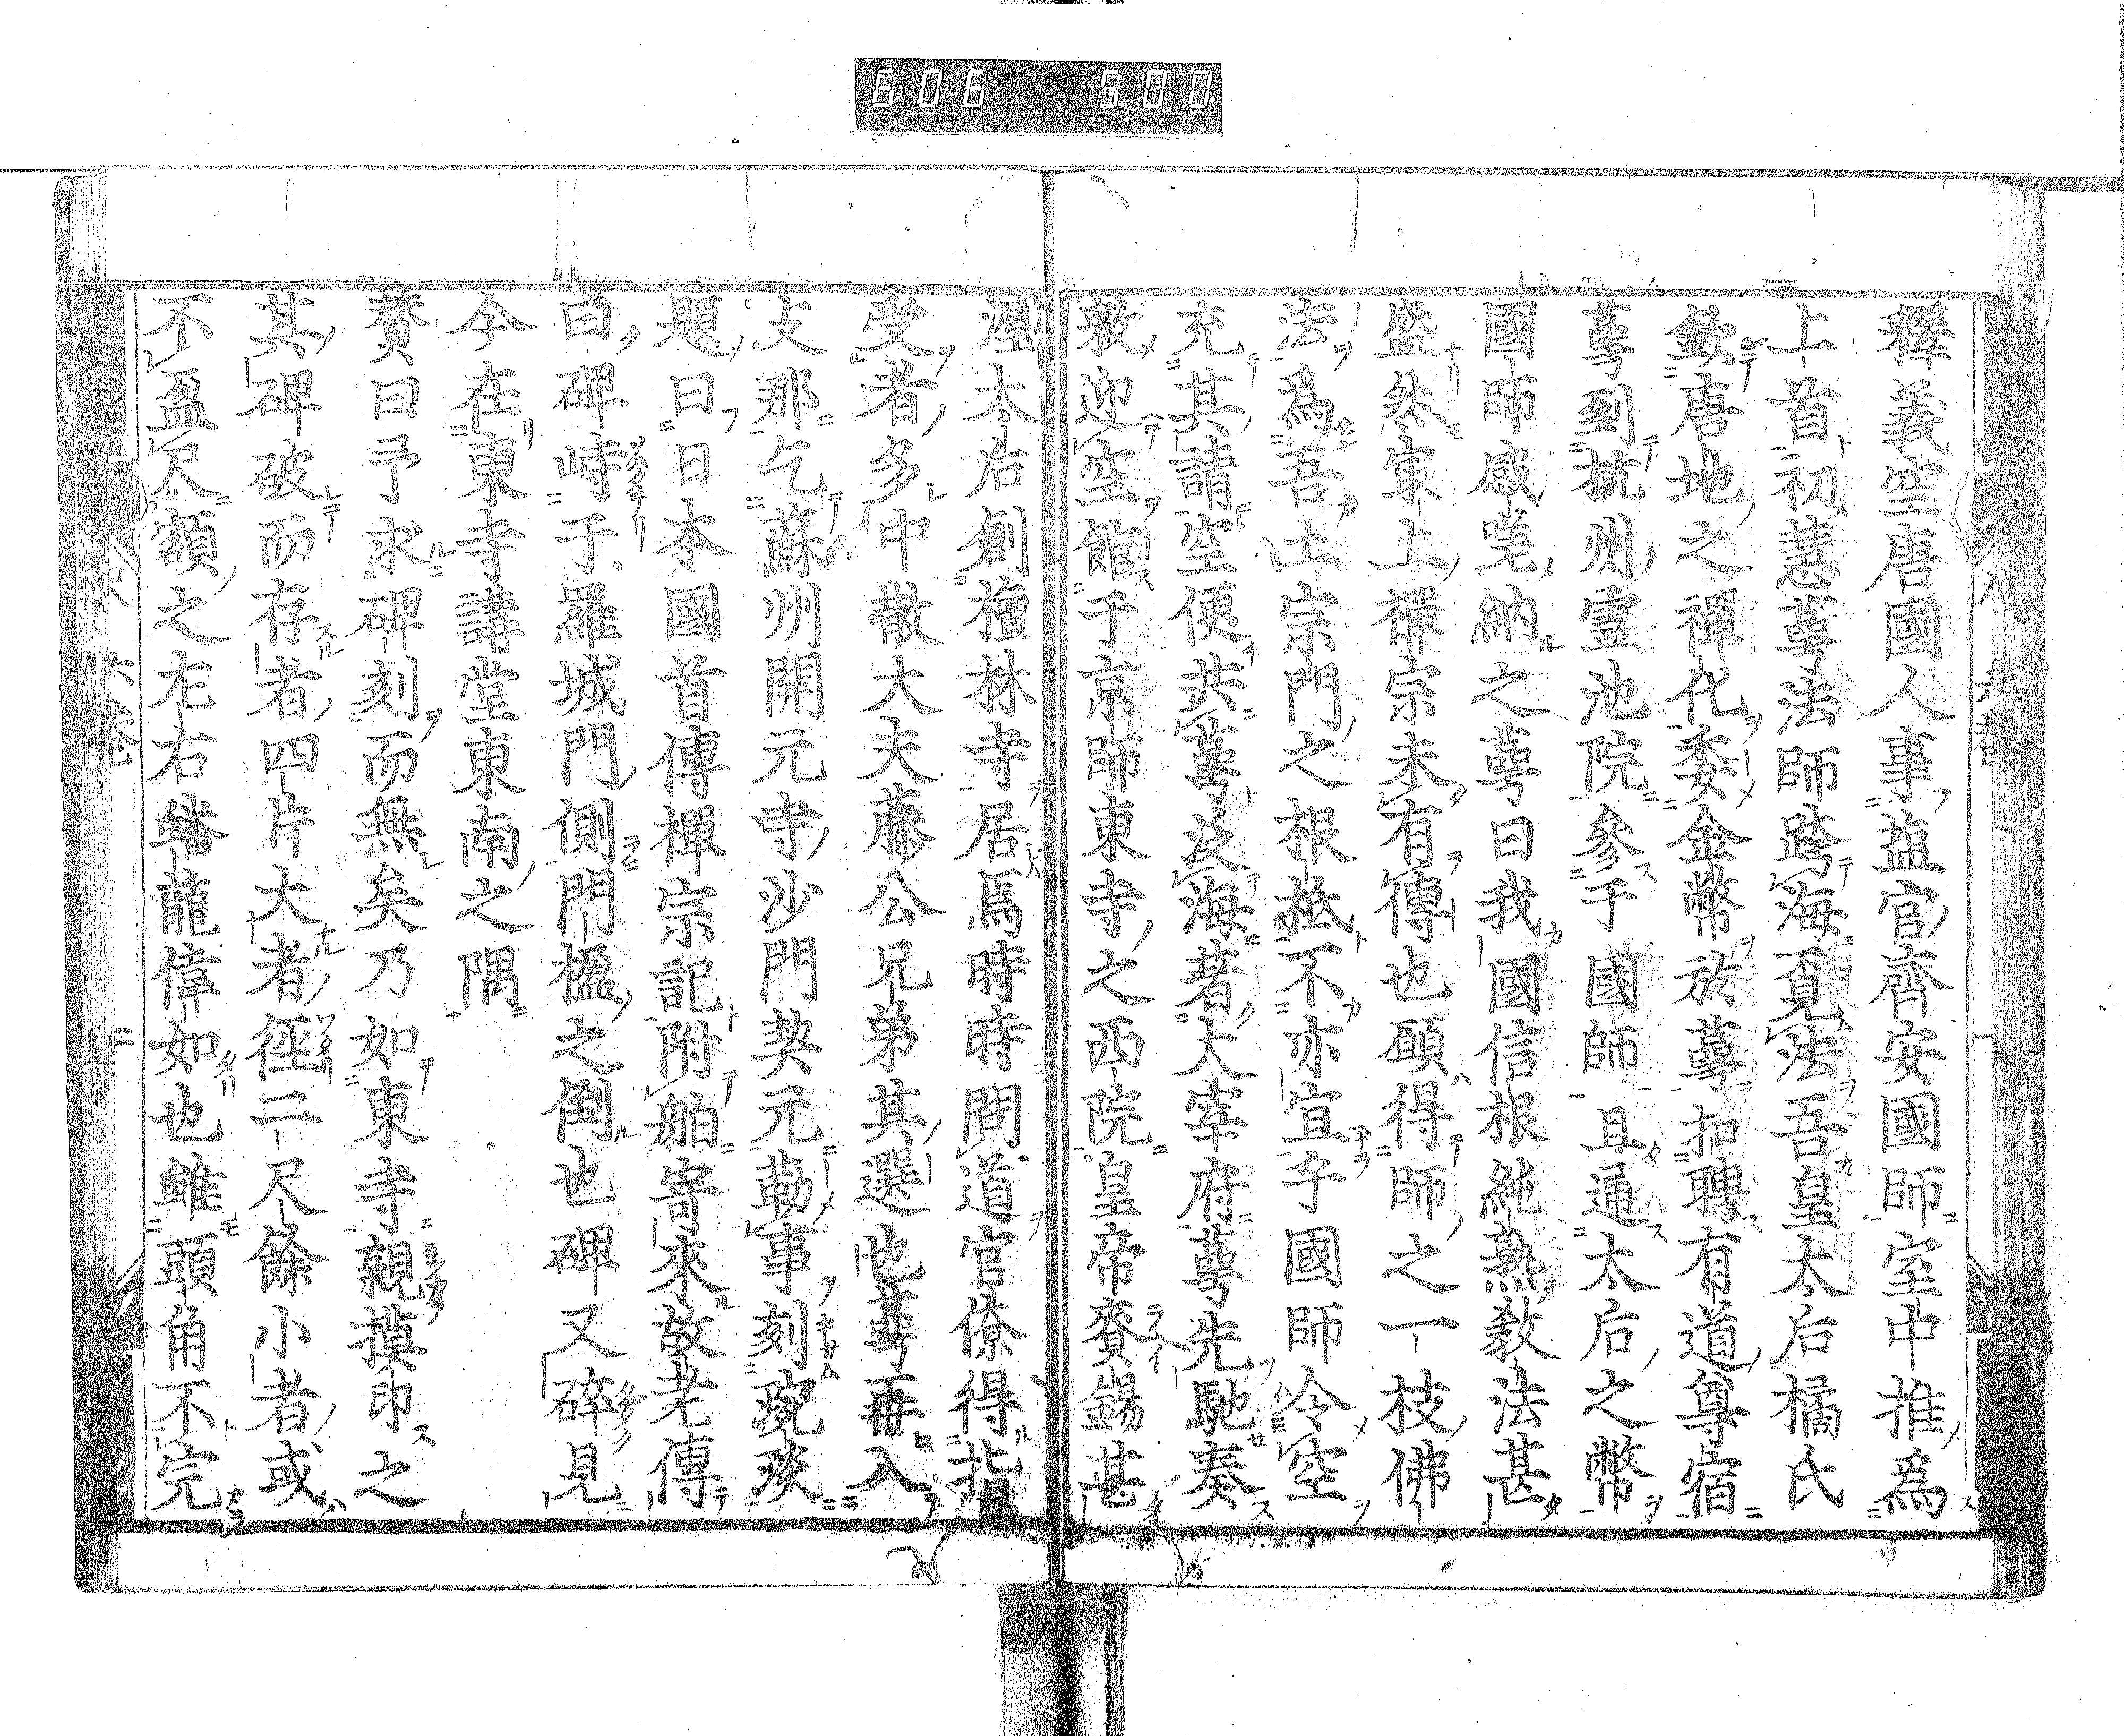 606 500
釋義空唐國人事塩官齊安國師室中推爲
上首初慧蕚法師跨海覔法吾皇太后橘氏
欽唐地之禪化委金幣於蕚扣聘有道尊宿
蕚到杭州靈池院參于國師且通太后之幣
國師感嗟納之蕚曰我國信根純熟敎法甚
盛然㝡上禪宗未有傳也願得師之一枝佛
法爲吾土宗門之根柢不亦宜乎國師令空
充其請空便共蕚泛海著大宰府蕚先馳奏
敕迎空館于京師東寺之西院皇帝賚錫甚
渥太后創檀林寺居焉時時問道官僚得指
受者多中散大夫藤公兄弟其選也蕚再入
支那乞蘇州開元寺沙門契元勒事刻琬琰
題曰日本國首傳禪宗記附舶寄來故老傳
曰碑峙于羅城門側門楹之倒也碑又碎見
今在東寺講堂東南之隅
賛曰予求碑刻而無矣乃如東寺親摸印之
其碑破而存者四片大者徑二尺餘小者或
不盈尺額之左右蟠龍偉如也雖頭角不完
六卷 二